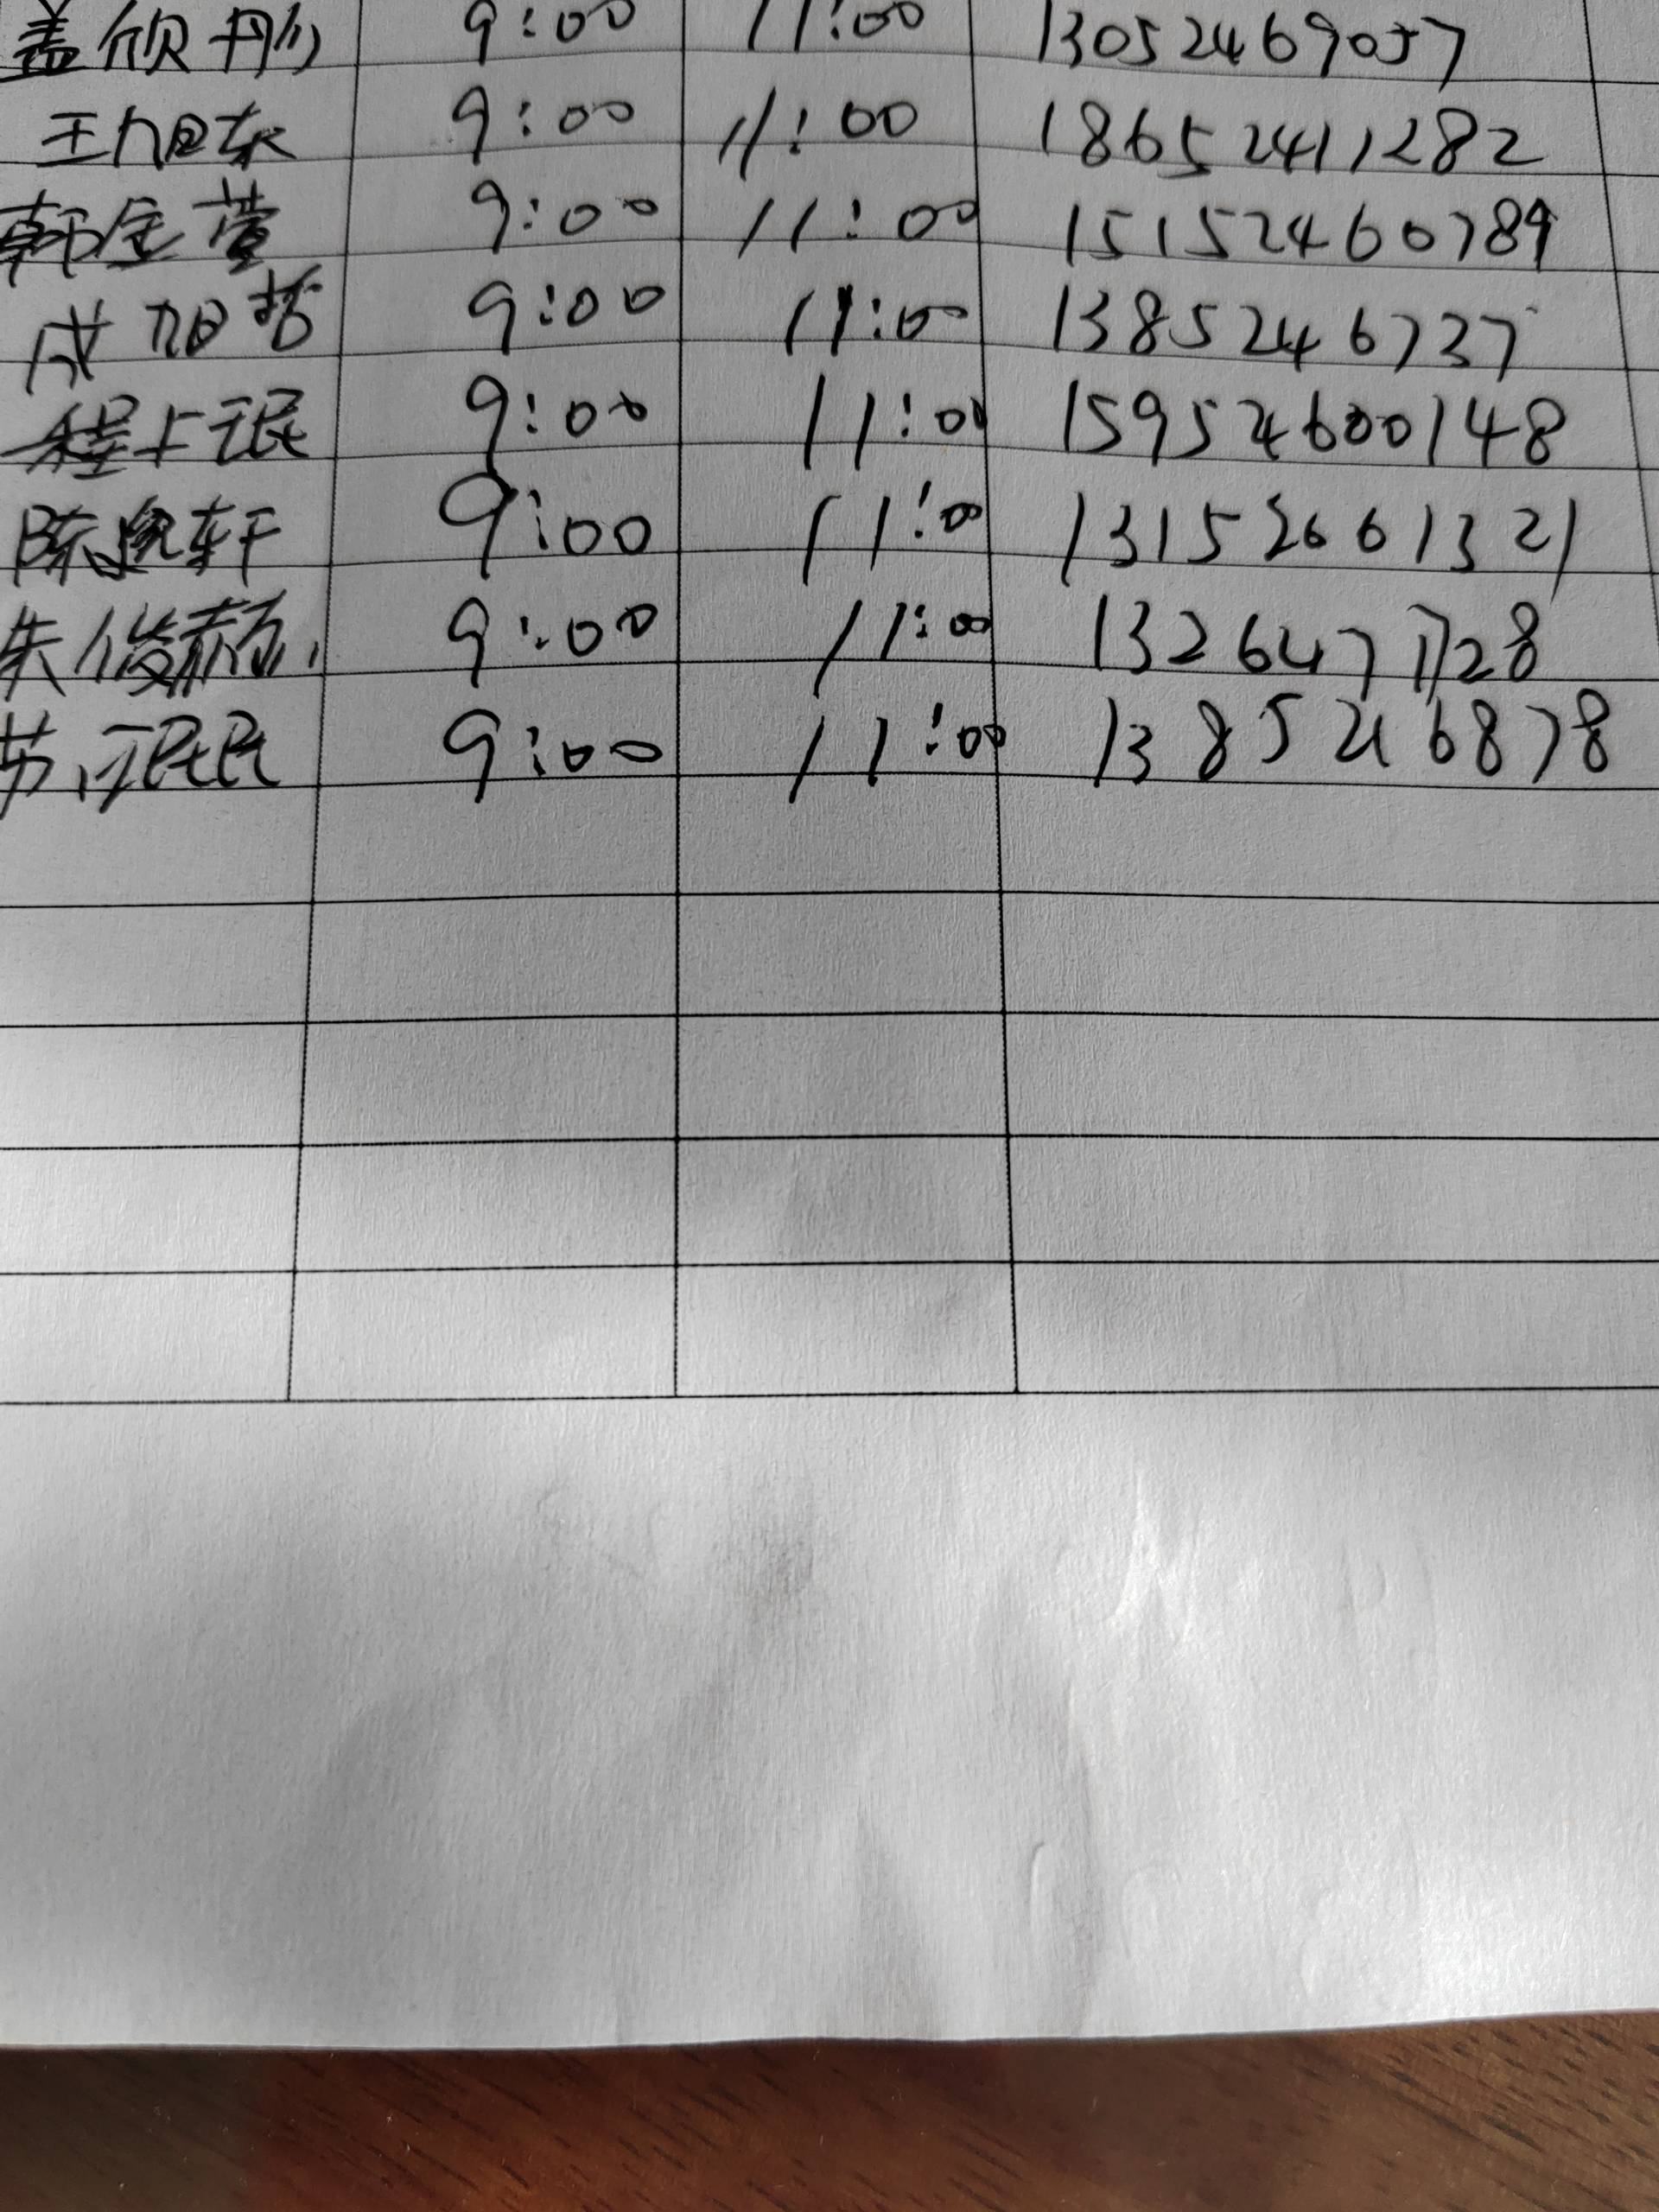 盖欣彤 9:00 11:00 13052469057
王旭东 9:00 11:00 18652411282
韩金萱 9:00 11:00 15152460789
成旭哲 9:00 11:00 1385246737
程上珉 9:00 11:00 159524600148
陈逸轩 9:00 11:00 13152661321
朱俊赫 9:00 11:00 1326477728
9:00 11:00 1385246878